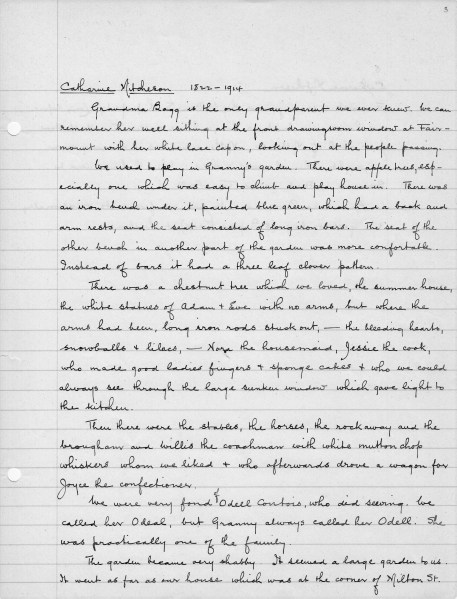 5
Catharine Mitcheson 1822-1914
Grandma Bagg is the only grandparent we ever knew. We can
remember her well sitting at the front drawingroom window at Fair-
mount with her white lace cap on, looking out at the people passing.
We used to play in Granny's garden. There were apple trees, esp-
ecially one which was easy to climb and play house in. There was
an iron bench under it, painted blue green, which had a back and
arm rests, and the seat consisted of long iron bars. The seat of the
other bench in another part of the garden was more comfortable.
Instead of bars it had a three leaf clover pattern.
There was a chestnut tree which we loved, the summer house,
the white statues of Adam + Eve with no arms, but where the
arms had been, long iron rods stuck out, — the bleeding hearts,
snowballs + lilacs, — Nora the housemaid, Jessie the cook,
who made good ladies fingers + sponge cakes + who we could
always see through the large sunken window which gave light to
the kitchen.
Then there were the stables, the horses, the rockaway and the
brougham and Willis the coachman with white mutton chop
whiskers whom we liked + who afterwards drove a wagon for
Joyce the confectioner.
We were very fond of Odell Contois, who did sewing. We
called her Odeal, but Granny always called her Odell. She
was practically one of the family.
The garden became very shabby. It seemed a large garden to us.
It went as far as our house which was at the corner of Milton St.